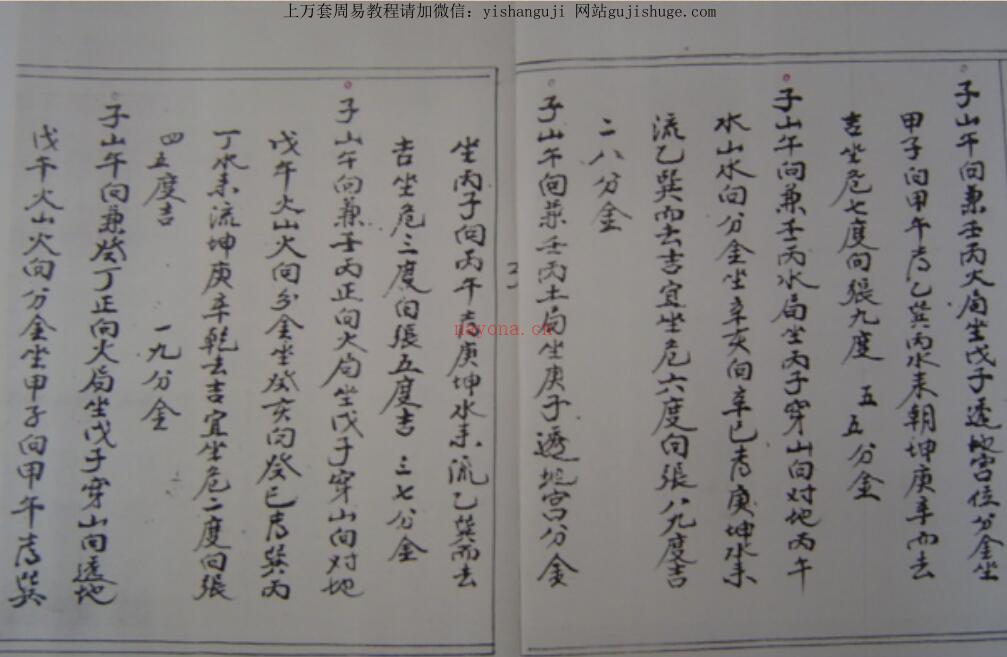 上万套周易教程请加微信：yishanguji 网站gujishuge.com
子山午向兼壬丙火局坐戊子透地宫位分金坐
甲子向甲午有乙巽丙水来朝坤庚辛而去
吉坐危七度向張九度 五五分金
子山午向兼壬丙水局坐丙子穿山向对地丙午
水山水向分金坐辛亥向辛巳有庚坤水来
流乙巽而去吉宜坐危六度向張八九度吉
二八分金
子山午向兼壬丙土局坐庚子透地宫分金
坐丙子向丙午有庚坤水来流乙巽而去
吉坐危三度向張五度吉 三七分金
子山午向兼壬丙正向火局坐戊子穿山向对地
戊午火山火向分金坐癸亥向癸巳有巽丙
丁水来流坤庚辛乾去吉宜坐危一度向張
四五度吉 一九分金
子山午向兼癸丁正向火局坐戊子穿山向透地
戊午火山火向分金坐甲子向甲午有巽
nayona.cn